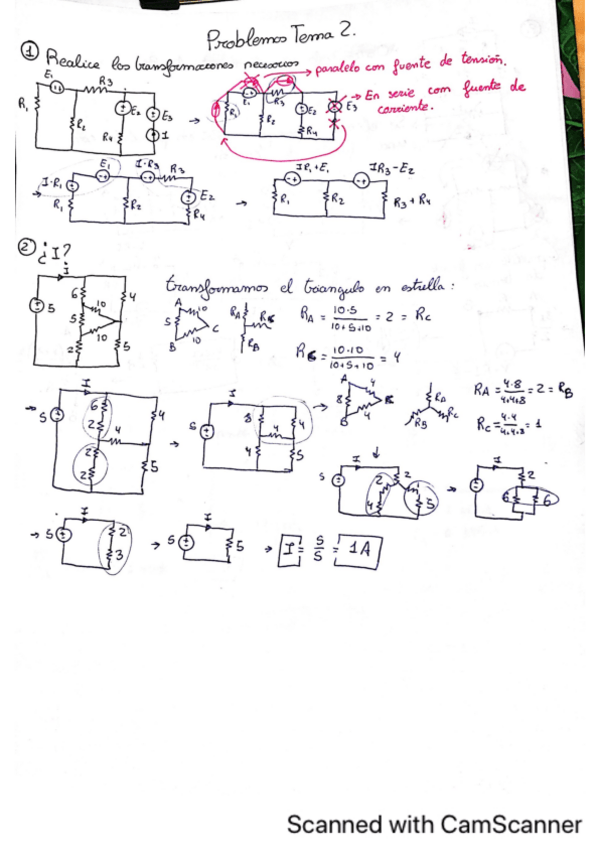 Problemas Tema 2.
① Realice las transformaciones necesarias
→ paralelo con fuente de tensión.
→ En serie con fuente de corriente.
E₁ R₃
R₁ R₂ E₂ E₃
R₄ I
→ R₁ E₁ R₃ R₂ E₂ E₃
R₄
E₁ I·R₃ R₃
→ I·R₁ E₂
R₁ R₂ R₄
→ IR₁+E₁ IR₃-E₂
R₁ R₂ R₃+R₄
② ¿I?
I
5 6 4
5 10
10
2 5
transformamos el triangulo en estrella:
A 10
5 C
B 10
RA
RB
RA = 10·5 / 10+5+10 = 2 = RC
= 10·10 / 10+5+10 = 4
→ I
5 6 4
2 4
2
2 5
→ I
5 8 4
4
4 5
→ A 4
8
B 4
RA
RB RC
RA = 4·8 / 4+4+8 = 2 = RB
RC = 4·4 / 4+4+8 = 1
↓
I
5 2
2
4 5
→ I
2
6 6
→ I
5 2
3
→ I
5 5
→ I = 5/5 = 1A
Scanned with CamScanner